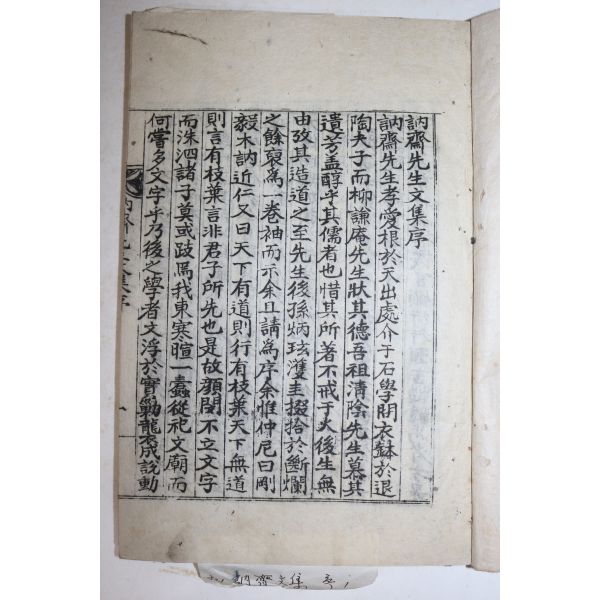 訥齋先生文集序
訥齋先生孝愛根於天出處介于石學問衣鉢於退
陶夫子而柳謙庵先生狀其德吾祖清陰先生慕其
遺芳盖醇乎其儒者也惜其所著不戒于火後生無
由攷其造道之至先生後孫炳玹濩圭掇拾於斷爛
之餘裒爲一卷袖而示余且請爲序余惟仲尼曰剛
毅木訥近仁又曰天下有道則行有枝葉天下無道
則言有枝葉言非君子所先也是故顔閔不立文字
而洙泗諸子莫或跂焉我東寒暄一蠹從祀文廟而
何嘗多文字乎乃後之學者文浮於實勦龍衣成說動
訥齋先生文集序
訥齋文集